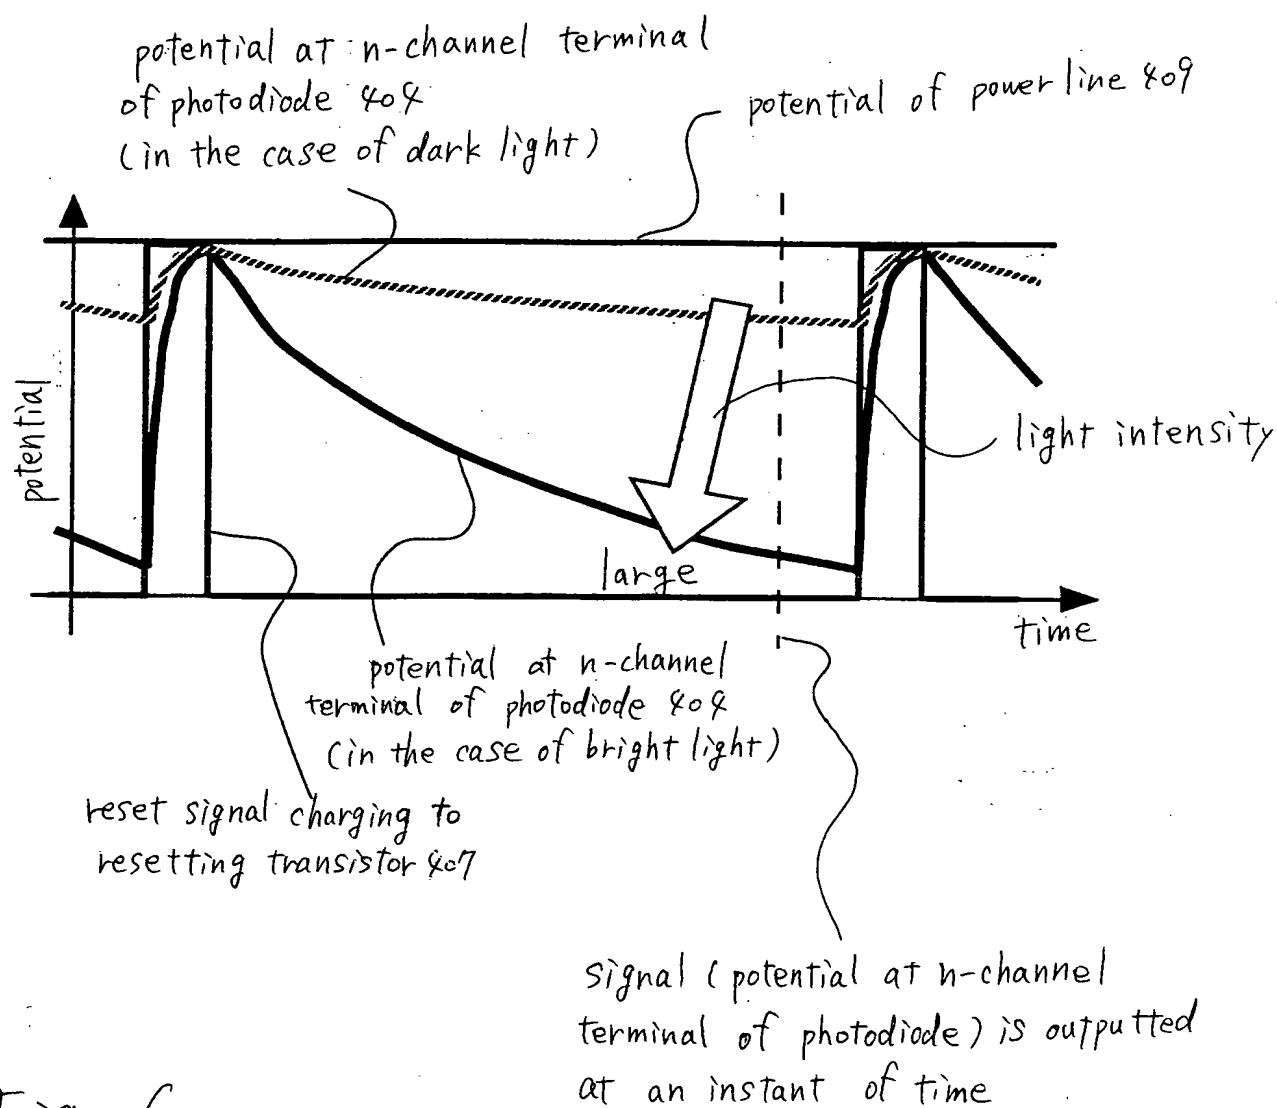 potential at n-channel terminal
of photodiode 404
(in the case of dark light)
potential of power line 409
potential
light intensity
large
time
potential at n-channel
terminal of photodiode 404
(in the case of bright light)
reset signal charging to
resetting transistor 407
signal (potential at n-channel
terminal of photodiode) is outputted
at an instant of time